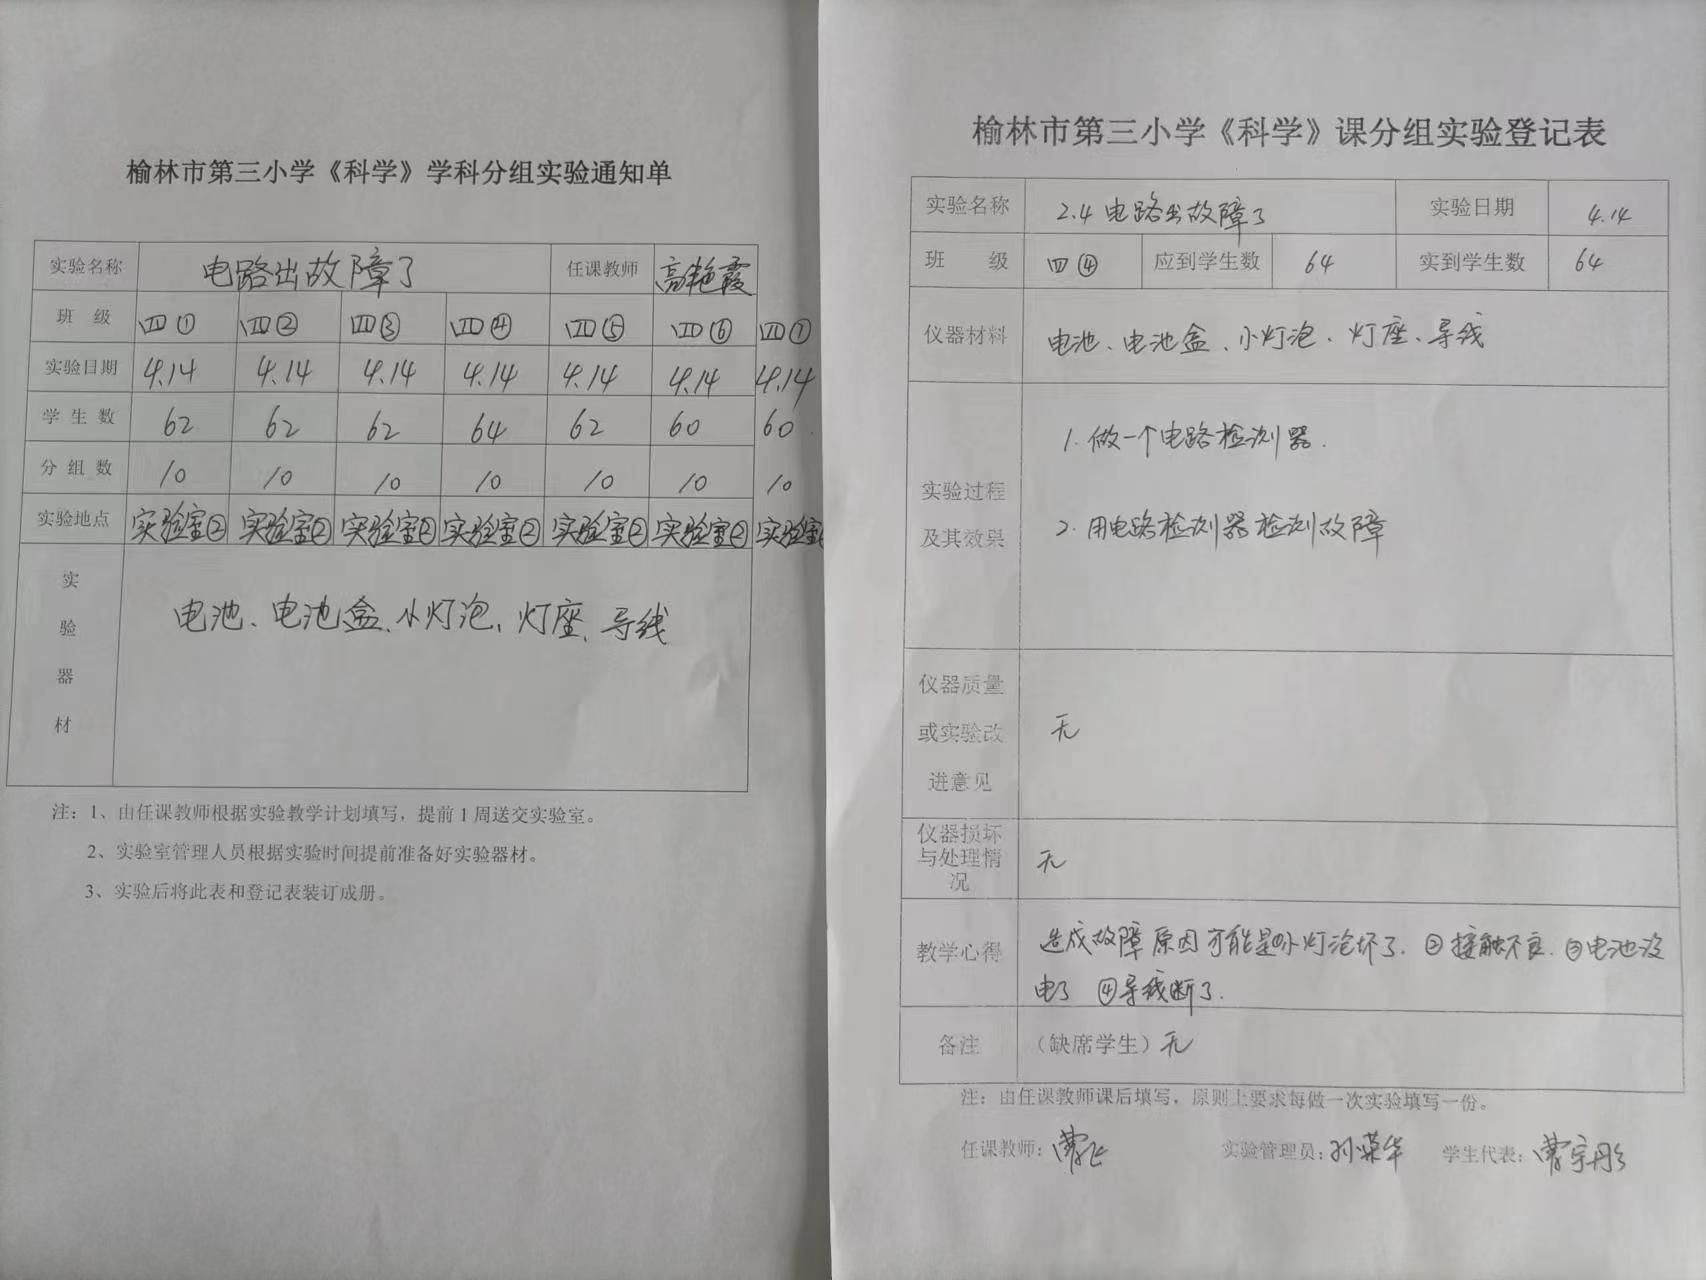 榆林市第三小学《科学》学科分组实验通知单
实验名称 电路出故障了 任课教师 高艳霞
班 级 四① 四② 四③ 四④ 四⑤ 四⑥ 四⑦
实验日期 4.14 4.14 4.14 4.14 4.14 4.14 4.14
学 生 数 62 62 62 64 62 60 60
分 组 数 10 10 10 10 10 10 10
实验地点 实验室② 实验室② 实验室② 实验室② 实验室② 实验室② 实验室
实验器材 电池、电池盒、小灯泡、灯座、导线
注：1、由任课教师根据实验教学计划填写，提前1周送交实验室。
2、实验室管理人员根据实验时间提前准备好实验器材。
3、实验后将此表和登记表装订成册。
榆林市第三小学《科学》课分组实验登记表
实验名称 2.4 电路出故障了 实验日期 4.14
班 级 四④ 应到学生数 64 实到学生数 64
仪器材料 电池、电池盒、小灯泡、灯座、导线
实验过程及其效果
1. 做一个电路检测器.
2. 用电路检测器检测故障
仪器质量或实验改进意见 无
仪器损坏与处理情况 无
教学心得 造成故障原因可能是①小灯泡坏了. ②接触不良. ③电池没
电了 ④导线断了.
备注 （缺席学生）无
注：由任课教师课后填写，原则上要求每做一次实验填写一份。
任课教师：曹飞 实验管理员：孙荣华 学生代表：曹宇彤